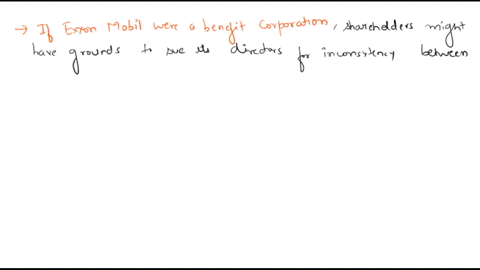 → If Exxon Mobil were a benefit Corporation, shareholders might
have grounds to sue its directors for inconsistency between